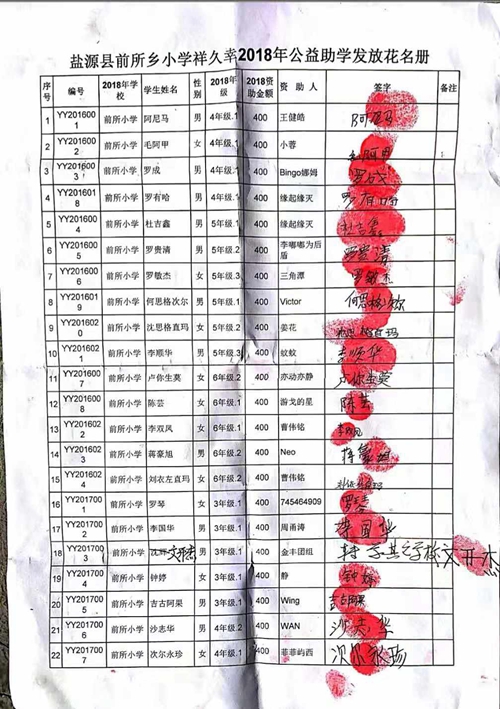 盐源县前所乡小学祥久幸2018年公益助学发放花名册
序号 编号 2018年学校 学生姓名 性别 2018年级 2018资助金额 资 助 人 签字 备注
1 YY2016001 前所小学 阿尼马 男 4年级.1 400 王健皓 阿尼马
2 YY2016002 前所小学 毛阿甲 女 4年级.1 400 小蓉
3 YY2016003 前所小学 罗成 男 4年级.1 400 Bingo娜姆 罗成
4 YY2016018 前所小学 罗有哈 男 4年级.1 400 缘起缘灭 罗有哈
5 YY2016004 前所小学 杜吉鑫 男 5年级.1 400 缘起缘灭 杜吉鑫
6 YY2016005 前所小学 罗贵清 男 5年级.2 400 李嘟嘟为后盾 罗贵清
7 YY2016006 前所小学 罗敏杰 女 5年级.3 400 三角潭 罗敏杰
8 YY2016019 前所小学 何思格次尔 男 5年级.1 400 Victor
9 YY2016020 前所小学 沈思格直玛 女 5年级.2 400 姜花
10 YY2016021 前所小学 李顺华 男 5年级.3 400 蚊蚊 李顺华
11 YY2016007 前所小学 卢你生莫 女 6年级.2 400 亦动亦静 卢你生莫
12 YY2016008 前所小学 陈芸 女 6年级.2 400 游戈的星 陈芸
13 YY2016022 前所小学 李双凤 女 6年级.1 400 曹伟铭 李双凤
14 YY2016023 前所小学 蒋豪旭 男 6年级.1 400 Neo 蒋豪旭
15 YY2016024 前所小学 刘衣左直玛 女 6年级.2 400 曹伟铭
16 YY2017001 前所小学 罗琴 女 3年级.1 400 745464909 罗琴
17 YY2017002 前所小学 李国华 男 3年级.1 400 周甬涛 李国华
18 YY2017003 前所小学 文开杰 男 3年级.1 400 金丰团组 文开杰
19 YY2017004 前所小学 钟婷 女 3年级.1 400 静 钟婷
20 YY2017005 前所小学 吉古阿果 女 3年级.1 400 Wing
21 YY2017006 前所小学 沙志华 男 4年级.2 400 WAN 沙志华
22 YY2017007 前所小学 次尔永珍 女 4年级.1 400 菲菲屿西 次尔永珍